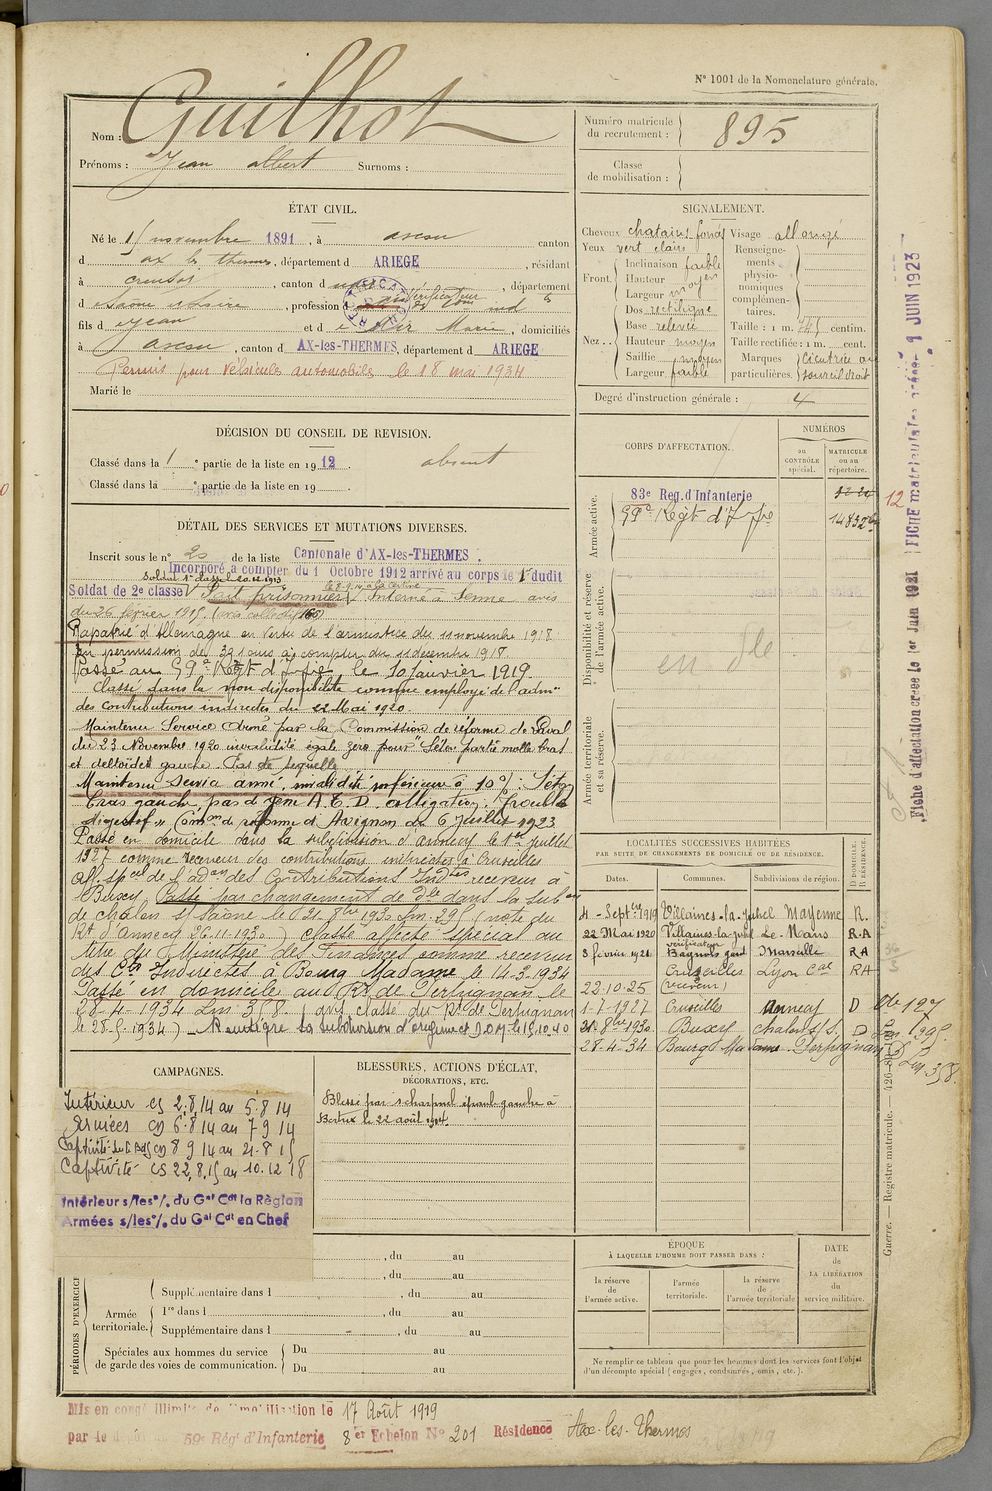 N° 1001 de la Nomenclature générale.
Nom : Guilhot
Prénoms : Jean albert Surnoms :
Numéro matricule du recrutement : 895
Classe de mobilisation :
ÉTAT CIVIL.
Né le 1 novembre 1891, à ascou canton
d ax les thermes, département d ARIEGE, résidant
à creusot, canton d, département
d Saône et Loire, profession d Vérificateur des Con ind
fils d Jean et d Marie, domiciliés
à ascou, canton d AX-les-THERMES, département d ARIEGE
Permis pour véhicules automobiles le 18 mai 1934
Marié le
SIGNALEMENT.
Cheveux chatains foncés Visage allongé
Yeux vert clairs Renseignements physionomiques complémentaires.
Front. Inclinaison faible
Hauteur moyen
Largeur moyen
Nez. Dos rectiligne
Base relevée Taille : 1 m. 745 centim.
Hauteur moyen Taille rectifiée : 1 m. cent.
Saillie moyen Marques particulières. cicatrice au sourcil droit
Largeur faible
Degré d'instruction générale : 4
DÉCISION DU CONSEIL DE REVISION.
Classé dans la 1 e partie de la liste en 1912. absent
Classé dans la e partie de la liste en 19
CORPS D'AFFECTATION.
NUMÉROS
au CONTRÔLE spécial.
MATRICULE ou au répertoire.
Armée active.
83e Reg. d'Infanterie
59e Regt d'Ife 14832
12
Disponibilité et réserve de l'armée active.
en dle
Armée territoriale et sa réserve.
DÉTAIL DES SERVICES ET MUTATIONS DIVERSES.
Inscrit sous le n° 20 de la liste Cantonale d'AX-les-THERMES.
Incorporé à compter du 1 Octobre 1912 arrivé au corps le 1er dudit
Soldat 1e classe le 20.12.1913
Soldat de 2e classe Fait prisonnier Interné à avis
du 26 février 1915.
Rapatrié d'Allemagne en vertu de l'armistice du 11 novembre 1918
En permission de 30 jours à compter du 11 décembre 1918.
Passé au 59e Regt d'Ife le 10 Janvier 1919.
Classé dans la non disponibilité comme employé de l'admon
des contributions indirectes du 22 Mai 1920.
Maintenu Service Armé par la Commission de réforme de Laval
du 23 Novembre 1920 invalidité égale zéro pour Séton partie molle bras
et deltoïde gauche. Pas de sequelle
Maintenu Service armé, invalidité inférieure à 10%: Séton
bras gauche, pas de gêne Trouble
digestif » Comon de réforme d'Avignon du 6 Juillet 1923
Passé en domicile dans la subdivision d'annecy le 1er juillet
1927 comme receveur des contributions indirectes à Cruseilles
aff. spcal de l'adon des Contributions Indtes receveur à
Buxey Passé par changement de dle dans la subon
de chalon s/ Saône le 21 8bre 1930 Lm. 29 (note du
Rt d'Annecy 26.11.1930) Classé affecté spécial au
titre du Ministère des Finances comme receveur
des Cts Indirectes à Bourg Madame le 14-3-1934
Passé en domicile au Rt de Perpignan le
28-4-1934 Lm 358. (avis classé du Rt de Perpignan
le 28-5-1934) Réintègre sa subdivision d'origine le 15.10.40
LOCALITÉS SUCCESSIVES HABITÉES
PAR SUITE DE CHANGEMENTS DE DOMICILE OU DE RÉSIDENCE.
Dates. Communes. Subdivisions de région. D DOMICILE. R RÉSIDENCE.
4 - Septbre 1919 Villaines-la-Juhel Mayenne R.
22 Mai 1920 Villaines-la-Juhel Le Mans R.A
vérificateur
8 février 1921. Bagnols gard Marseille RA
22.10.25 Cruseilles (receveur) Lyon Cal RA
1-7-1927 Cruseilles Annecy D
21-8bre 1930. Buxey chalon s/s. D
28-4-34 Bourg Madame Perpignan D
Lm 358.
CAMPAGNES.
Intérieur cs 2.8.14 au 5.8 14
Armées cg 6.8.14 au 7 9 14
Captivité cg 8 9 14 au 21.8 15
Captivité cs 22.8.15 au 10.12 18
Intérieur s/les %. du Gal Cdt la Région
Armées s/les %. du Gal Cdt en Chef
BLESSURES, ACTIONS D'ÉCLAT, DÉCORATIONS, ETC.
Blessé par scharpnel épaule gauche à
Bertrix le 22 août 1914
PÉRIODES D'EXERCICE
, du au
, du au
Armée territoriale.
Supplémentaire dans l , du au
1re dans l , du au
Supplémentaire dans l , du au
Spéciales aux hommes du service de garde des voies de communication.
Du au
Du au
ÉPOQUE
À LAQUELLE L'HOMME DOIT PASSER DANS :
la réserve de l'armée active.
l'armée territoriale.
la réserve de l'armée territoriale
DATE DE LA LIBÉRATION du service militaire.
Ne remplir ce tableau que pour les hommes dont les services font l'objet
d'un décompte spécial (engagés, condamnés, omis, etc.)
Mis en congé illimité de démobilisation le 17 Août 1919
par le dépôt du 59e Rég' d'Infanterie 8er Echelon N° 201 Résidence Ax-les-Thermes
Fiche d'affectation créée le 1er Juin 1921
FICHE matriculaire créée 9 JUIN 1923
Guerre. — Registre matricule.